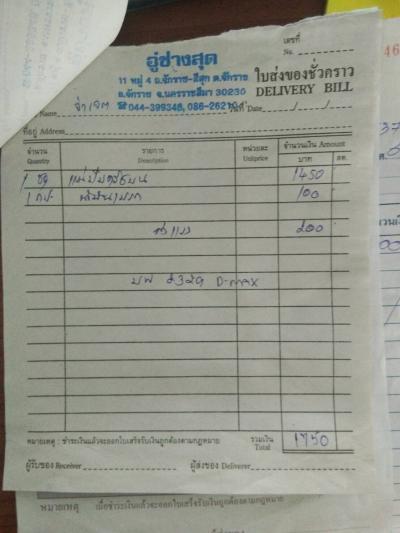 เลขที่
No.
อู่ช่างสุด
11 หมู่ 4 ถ.จักราช-สีสุก ต.จักราช
อ.จักราช จ.นครราชสีมา 30230
☎044-399348, 086-2621
ใบส่งของชั่วคราว
DELIVERY BILL
Name
วันที่ Date / /
ที่อยู่ Address
จำนวน รายการ หน่วยละ จำนวนเงิน Amount
Quantity Description Unitprice บาท สต.
1 ชุด แม่ปั๊มครัชบน 1450
1 กป. น้ำมันเบรก 100
ค่าแรง 200
2329 D-max
หมายเหตุ : ชำระเงินแล้วจะออกใบเสร็จรับเงินถูกต้องตามกฎหมาย รวมเงิน 1750
Total
ผู้รับของ Receiver ผู้ส่งของ Deliverer
หมายเหตุ เมื่อชำระเงินแล้วจะออกใบเสร็จรับเงินถูกต้องตามกฎหมาย